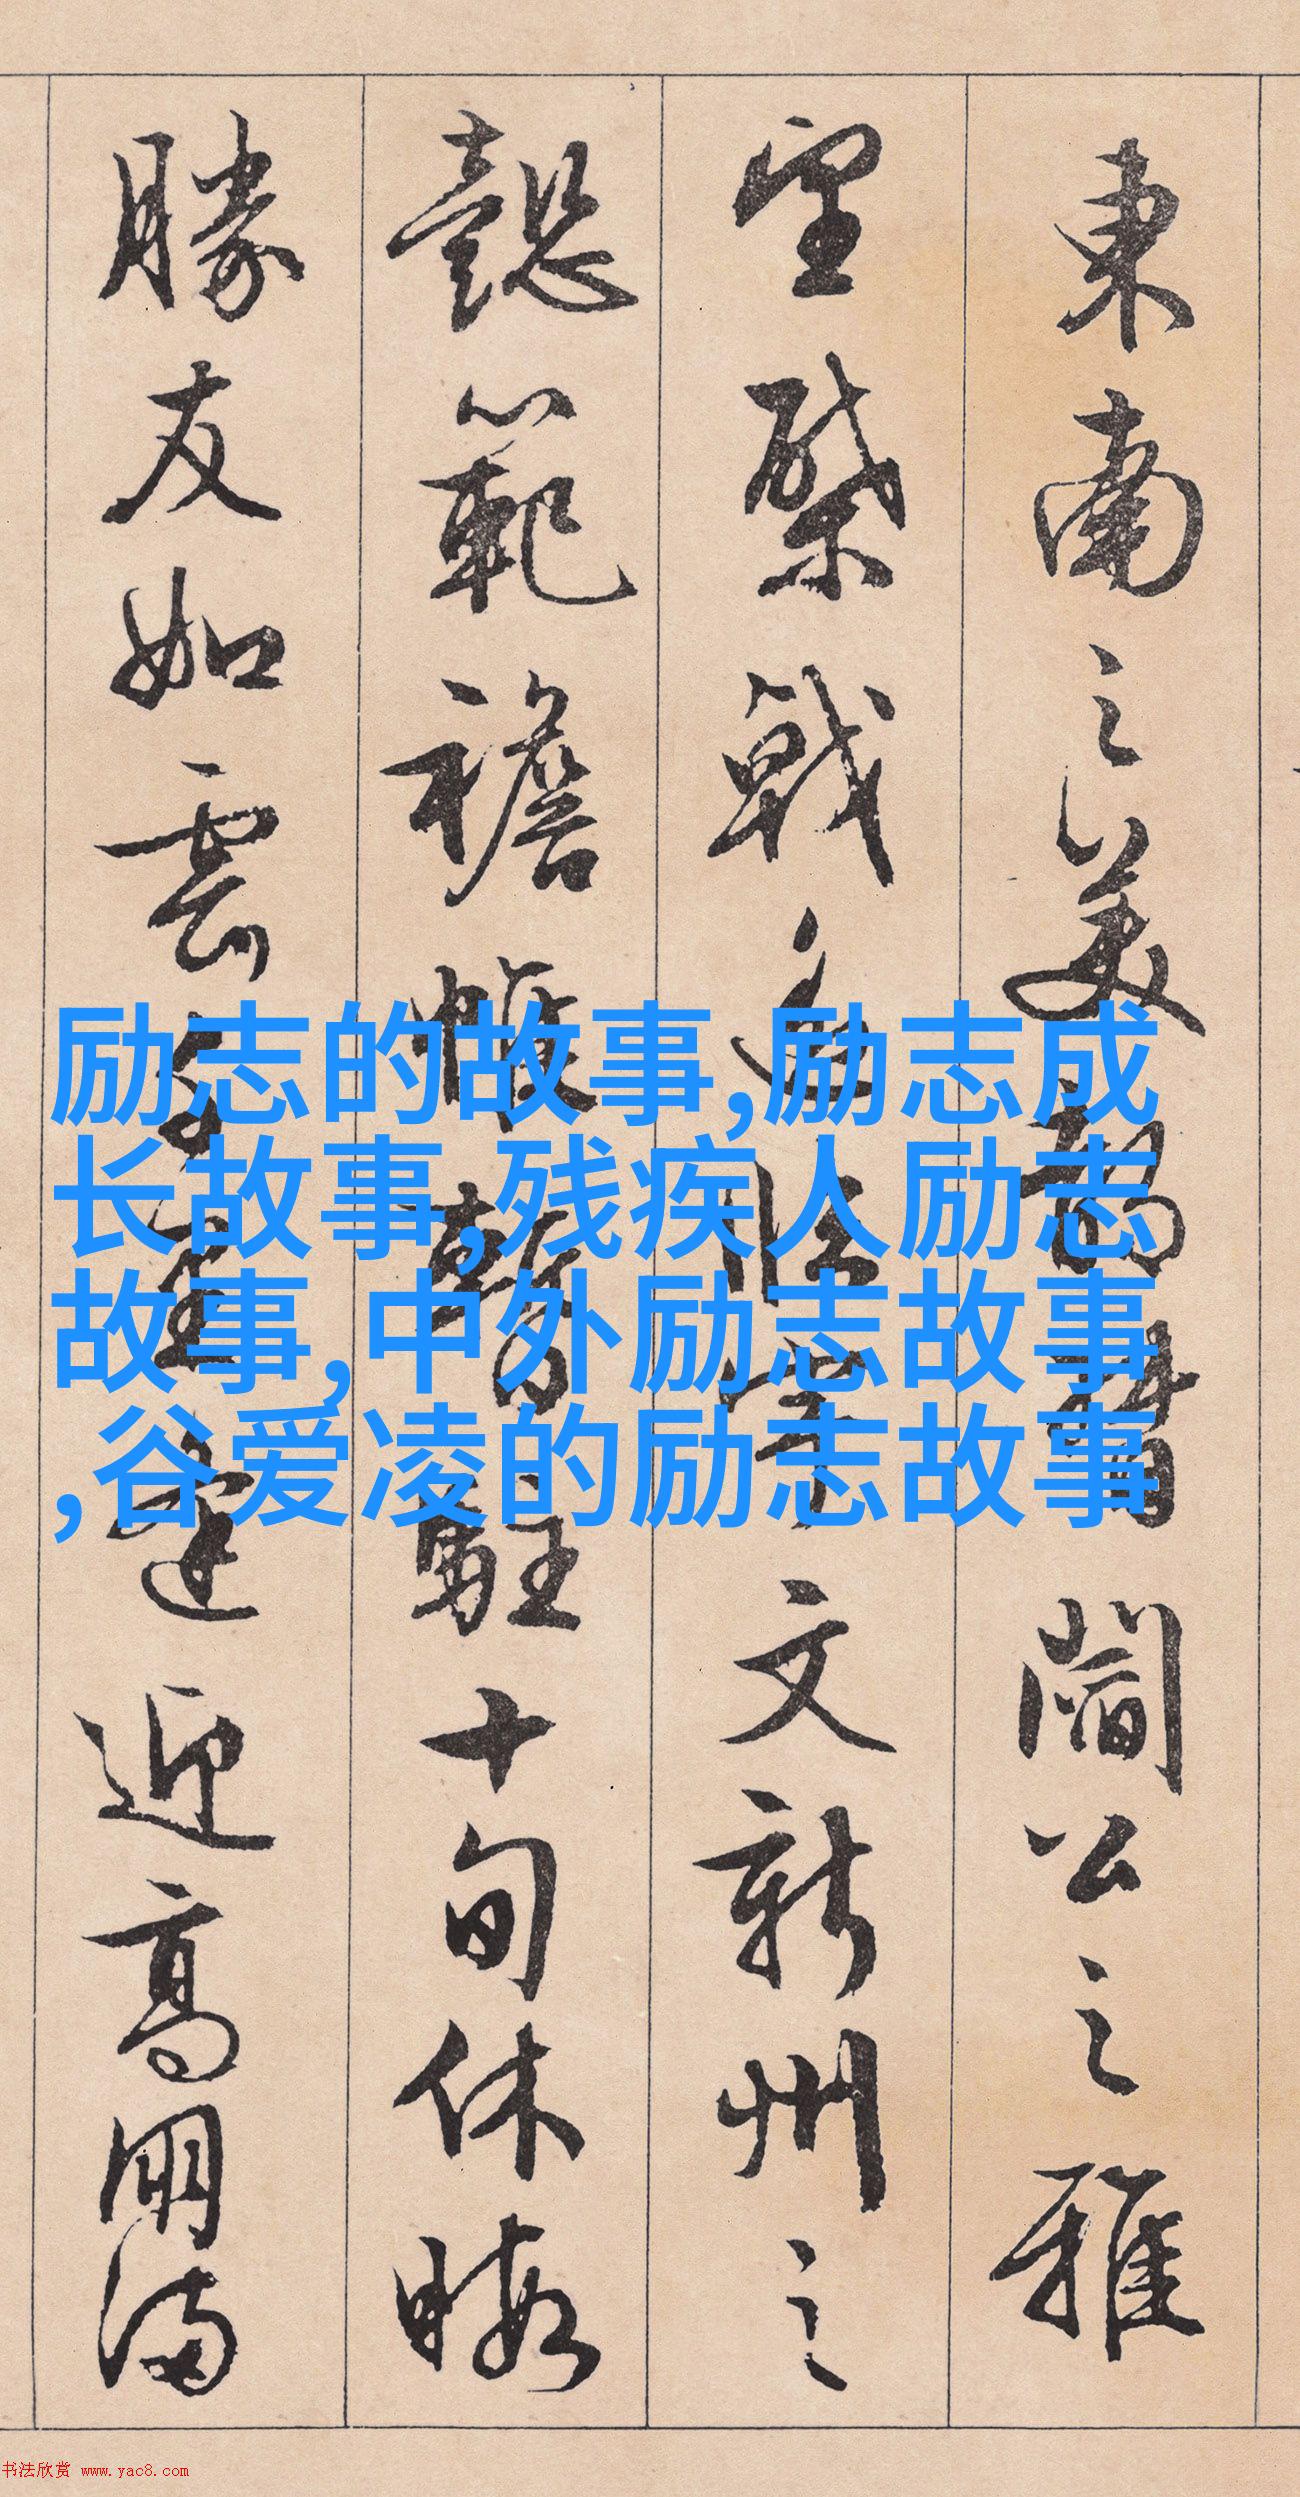 東南之美都督閻公之雅
望棨戟遥臨宇文新州之
懿範襜帷暫駐十旬休暇
勝友如雲千里逢迎高朋滿
励志的故事,励志成
长故事,残疾人励志
故事,中外励志故事
,谷爱凌的励志故事
书法欣赏 www.yac8.com